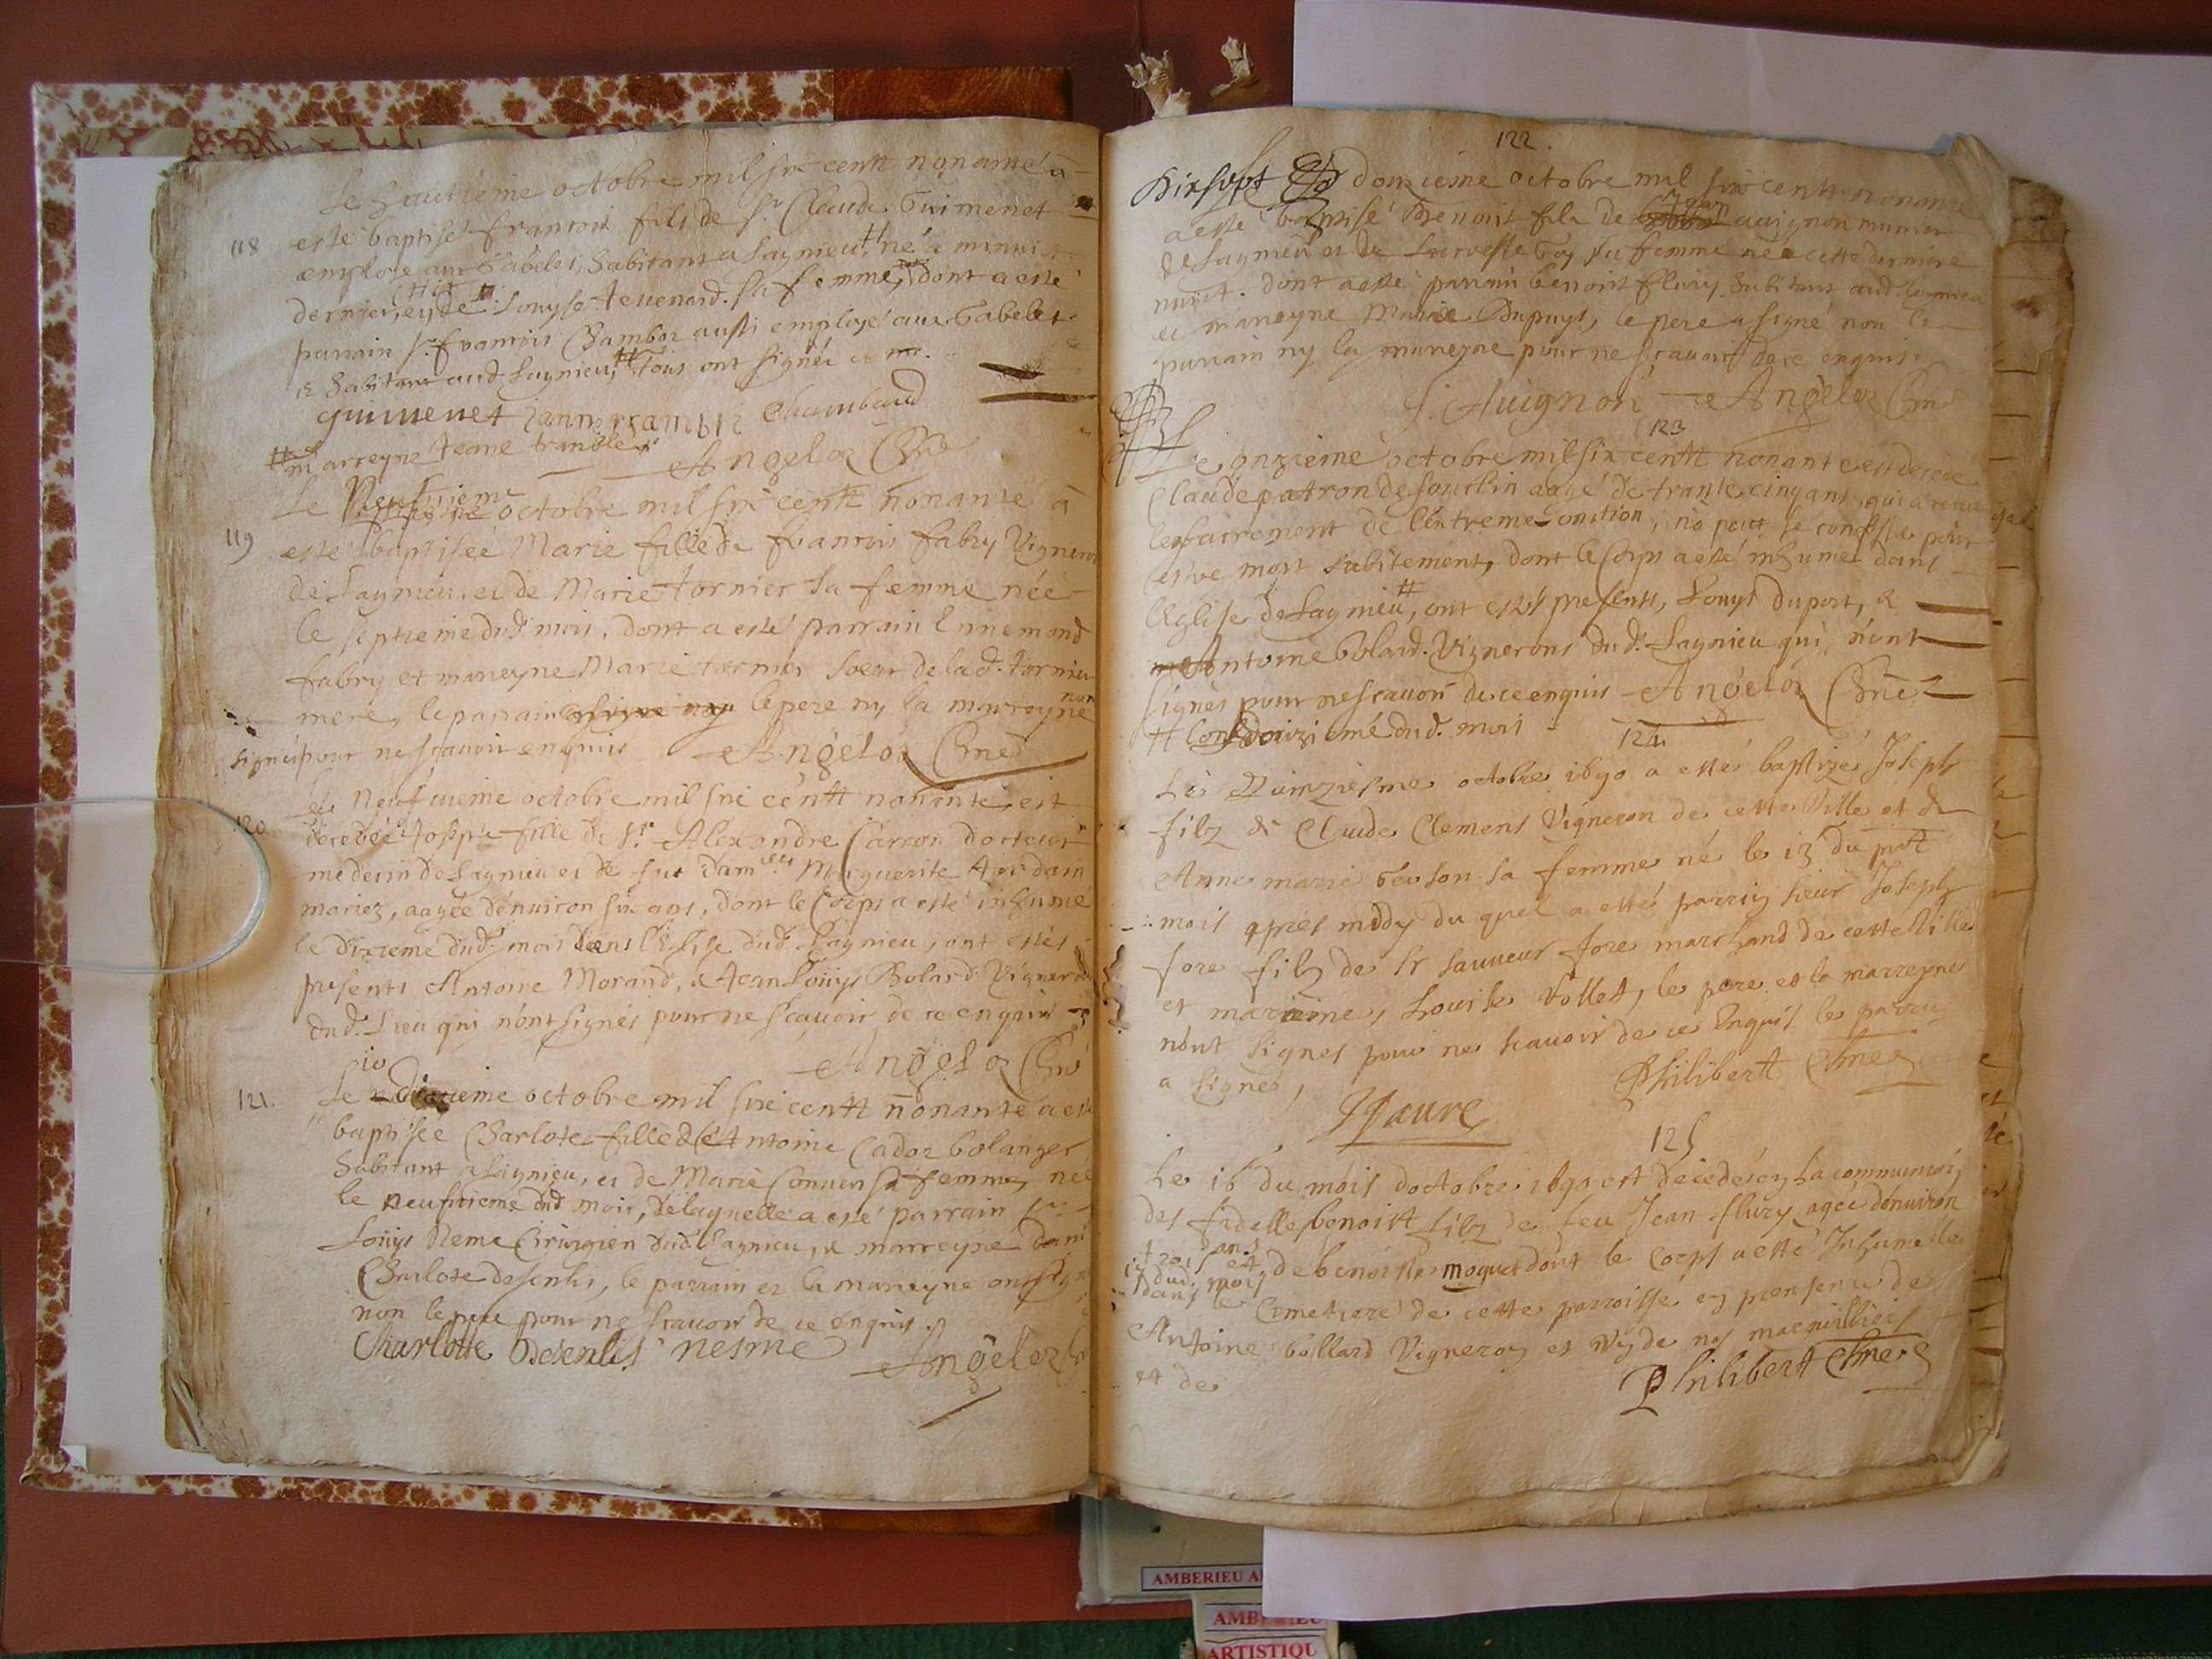 Le huictieme octobre mil six centt nonante à
118
esté baptisé francois fils de Sr. Claude Guimenet
employé aux Gabeles, habitant a Lagnieu, né a minuict
dernier, et de Louyse tevenard sa femme, dont a esté
parrain Sr. francois Chambar aussi employé aux Gabeles
et habitant aud Lagnieu, # Tous ont signés
guimenet Chambard
# marreyne Jeane tranble
Angelot Cure
Le Neufvieme octobre mil six centt nonante à
119
esté baptiseé Marie fille de francois fabry Vigneron
de Lagnieu, et de Marie tornier sa femme née
le septieme dud. mois, dont a esté parrain Ennemond
fabry et mareyne Marie tornier soeur de lad. tornier
mere, le parrain le pere ny la marreyne non
signés pour ne scavoir enquis Angelot Cure
Le Neufvieme octobre mil six centt nonante, est
120
decedée Josephe fille de Sr. Alexandre Carron docteur
medecin de Lagnieu et de Marguerite Jordain
mariez, aagée d'enuiron six ans, dont le Corps a esté inhumé
le dixieme dud. mois dans l'Eglise dud Lagnieu, ont estés
presents Antoine Morand, et Jean Louys Bolard Vigneron
dud. Lieu qui n'ont signés pour ne scauoir de ce enquis
Angelot Cure
10
121. Le dixieme octobre mil six centt nonante a esté
baptisée Charlote fille de Antoine Cador bolanger
habitant a Lagnieu, et de Marie Convers sa femme, née
le neufvieme dud mois, de laquelle a esté parrain Sr.
Louys Neme Cirurgien dud Lagnieu, et marreyne dam
Charlote desenlis, le parrain et la mareyne ont signé
non le pere pour ne scauoir de ce enquis.
Charlotte Desenlis nesme Angelot
122.
Dixsept Le douzieme octobre mil six centt nonante
a esté baptisé Benoist fils de Jean auignon munier
de Lagnieu et de Guy sa femme né a cette derniere
nuict. dont a esté parrain benoist fleury habitant aud. Lagnieu
et mareyne Marie Dupuys, le pere a signé non le
parrain ny la mareyne pour ne scauoir de ce enquis.
J. Auignon Angelot Cure
123
Le onzieme octobre mil six centt nonante est decede
Claude patron de aagé de trante cinq ans, qui a receu
le sacrement de l'extreme onction, n'a peut se confesser pour
estre mort subitement, dont le Corps a esté inhumé dans
l'Eglise de Lagnieu #, ont estés presents, Louys duport, et
Antoine Bolard. Vignerons dud. Lagnieu qui n'ont
signés pour ne scauoir de ce enquis Angelot Cure
# douzieme dud. mois
124
Le Quinziesme octobre 1690 a esté baptizé Joseph
filz de Claude Clemens Vigneron de cette Ville et de
Anne marie sa femme né le 13 du pnt
mois apres middy du quel a esté parrin sieur Joseph
fore filz de Sr sauueur fore marchand de cette Ville
et mareine, Louise Vollet, le pere et la marreyne
n'ont signes pour ne scauoir de ce Enquis le parrin
a signé, Philibert Cure
JFaure
125
Le 16 du mois doctobre 1690 est decedé en La communion
des fidelles benoist filz de feu Jean flury, agée denuiron
trois ans et de benoiste moquet dont le Corps a esté Inhumé le
17 dud. mois dans le Cimetiere de cette parroisse en presence de
Antoine bollard Vigneron et Vn de nos marguilliers
et de Philibert Cure
AMBERIEU
AMBERIEU
ARTISTIQU